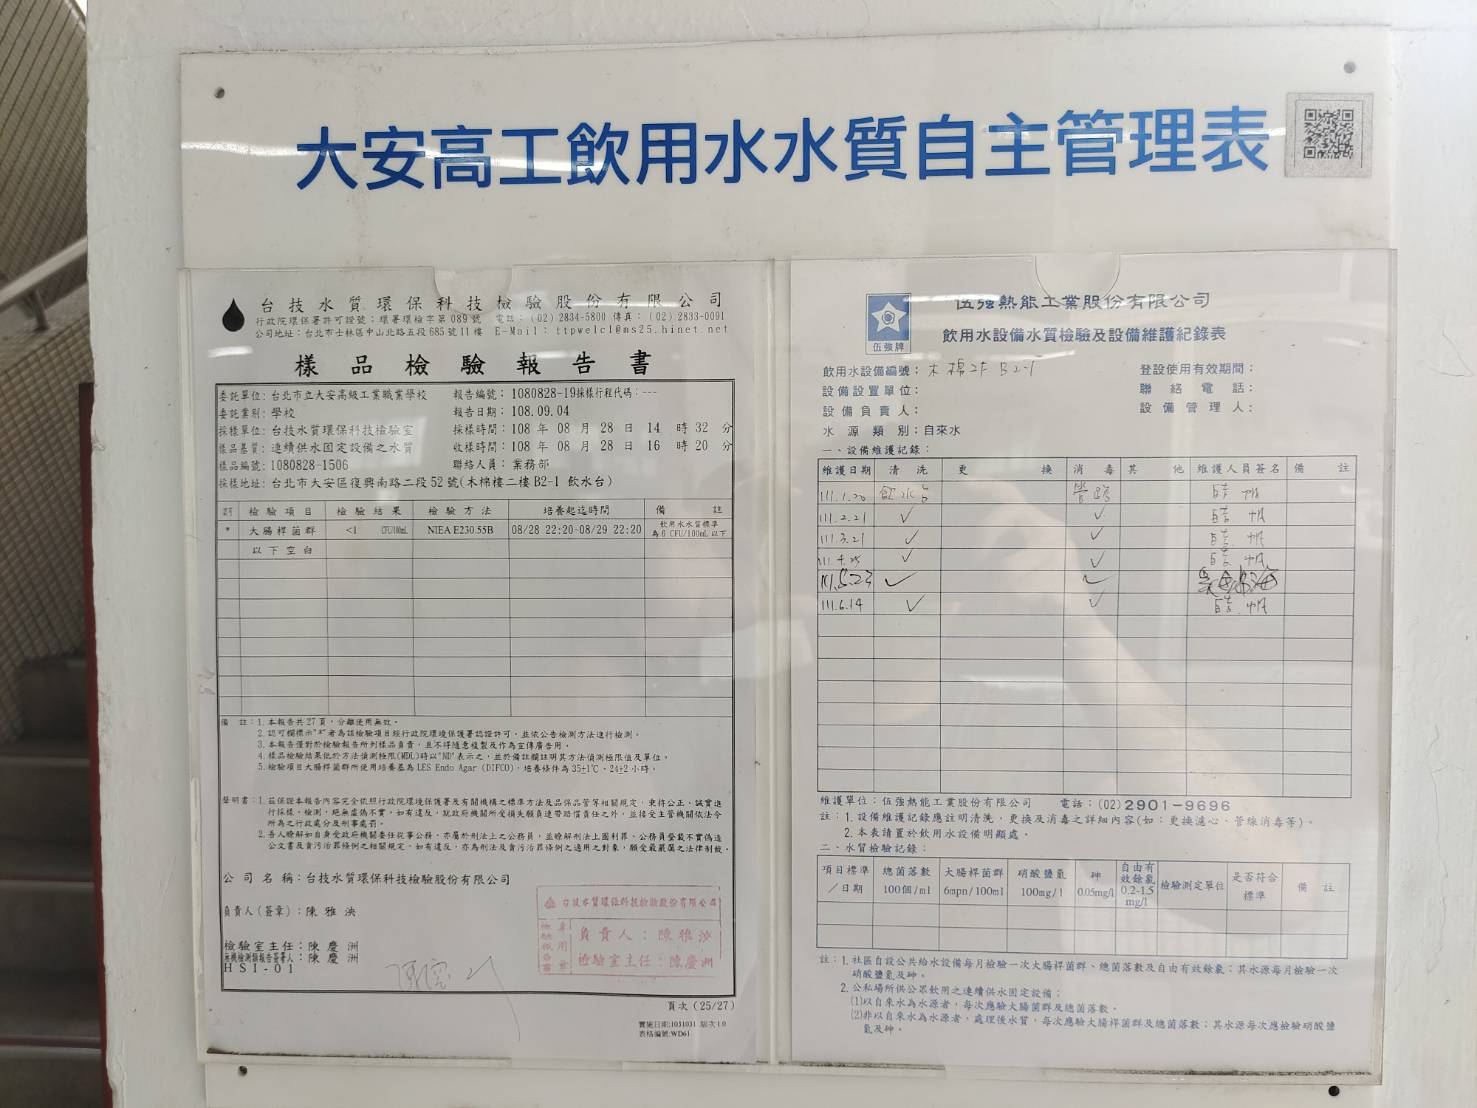 大安高工飲用水水質自主管理表
台技水質環保科技檢驗股份有限公司
行政院環保署許可證號：環署環檢字第089號 電話：(02)2834-5800 傳真：(02)2833-0091
公司地址：台北市士林區中山北路五段685號11樓 E-Mail：ttpwelcl@ms25.hinet.net
樣品檢驗報告書
委託單位：台北市立大安高級工業職業學校 報告編號：1080828-19採樣行程代碼：---
委託業別：學校 報告日期：108.09.04
採樣單位：台技水質環保科技檢驗室 採樣時間：108 年 08 月 28 日 14 時 32 分
樣品基質：連續供水固定設備之水質 收樣時間：108 年 08 月 28 日 16 時 20 分
樣品編號：1080828-1506 聯絡人員：業務部
採樣地址：台北市大安區復興南路二段52號(木棉樓二樓 B2-1 飲水台)
認可 檢驗項目 檢驗結果 檢驗方法 培養起迄時間 備註
* 大腸桿菌群 <1 CFU/100mL NIEA E230.55B 08/28 22:20-08/29 22:20 飲用水水質標準為6 CFU/100mL以下
以下空白
備 註：1. 本報告共27頁，分離使用無效。
2. 認可欄標示"*"者為該檢驗項目經行政院環境保護署認證許可，並依公告檢測方法進行檢測。
3. 本報告僅對於檢驗報告所列樣品負責，且不得隨意複製及作為宣傳廣告用。
4. 樣品檢驗結果低於方法偵測極限(MDL)時以"ND"表示之，並於備註欄註明其方法偵測極限值及單位。
5. 檢驗項目大腸桿菌群所使用培養基為 LES Endo Agar (DIFCO)，培養條件為 35±1℃，24±2 小時。
聲明書：1. 茲保證本報告內容完全依照行政院環境保護署及有關機構之標準方法及品保品管等相關規定，秉持公正、誠實進
行採樣、檢測，絕無虛偽不實，如有違反，就政府機關所受損失願負連帶賠償責任之外，並接受主管機關依法令
所為之行政處分及刑事處罰。
2. 吾人瞭解如自身受政府機關委任從事公務，亦屬於刑法上之公務員，並瞭解刑法上圖利罪、公務員登載不實偽造
公文書及貪污治罪條例之相關規定，如有違反，亦為刑法及貪污治罪條例之適用之對象，願受最嚴厲之法律制裁。
公司名稱：台技水質環保科技檢驗股份有限公司
負責人(簽章)：陳雅泱
檢驗室主任：陳慶洲
無機檢測類報告簽署人：陳慶洲
HSI-01
台技水質環保科技檢驗股份有限公司
檢驗報告專用章
負責人：陳雅沙
檢驗室主任：陳慶洲
頁次 (25/27)
實施日期:1031031 版次1.0
表格編號:WD61
伍強牌
伍強熱能工業股份有限公司
飲用水設備水質檢驗及設備維護紀錄表
飲用水設備編號：木棉2F B2-1 登設使用有效期間：
設備設置單位： 聯絡電話：
設備負責人： 設備管理人：
水源類別：自來水
一、設備維護記錄：
維護日期 清洗 更換 消毒 其他 維護人員簽名 備註
111.1.20 飲水台 管路
111.2.21 ✓ ✓
111.3.21 ✓ ✓
111.4.25 ✓ ✓
111.5.23 ✓ ✓
111.6.14 ✓ ✓
維護單位：伍強熱能工業股份有限公司 電話：(02)2901-9696
註：1. 設備維護記錄應註明清洗，更換及消毒之詳細內容(如：更換濾心、管線消毒等)。
2. 本表請置於飲用水設備明顯處。
二、水質檢驗記錄：
項目標準／日期 總菌落數 100個/ml 大腸桿菌群 6mpn/100ml 硝酸鹽氮 100mg/l 砷 0.05mg/l 自由有效餘氯 0.2-1.5 mg/l 檢驗測定單位 是否符合標準 備註
註：1. 社區自設公共給水設備每月檢驗一次大腸桿菌群、總菌落數及自由有效餘氯；其水源每月檢驗一次
硝酸鹽氮及砷。
2. 公私場所供公眾飲用之連續供水固定設備：
(1)以自來水為水源者，每次應驗大腸桿菌群及總菌落數。
(2)非以自來水為水源者，處理後水質，每次應驗大腸桿菌群及總菌落數；其水源每次應檢驗硝酸鹽
氮及砷。